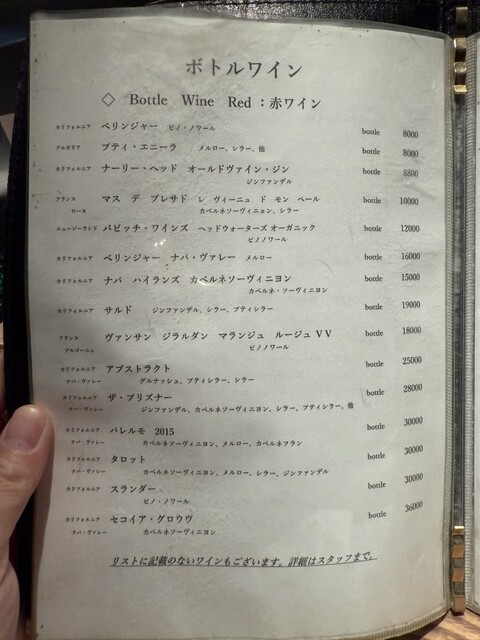 ボトルワイン
◇ Bottle Wine Red：赤ワイン
カリフォルニア ベリンジャー ピノ・ノワール bottle 8000
ブルガリア プティ・エニーラ メルロー、シラー、他 bottle 8000
カリフォルニア ナーリー・ヘッド オールドヴァイン・ジン bottle 8800
ジンファンデル
フランス マス デ ブレサド レ ヴィーニュ ド モン ペール bottle 10000
ローヌ カベルネソーヴィニョン、シラー
ニュージーランド バビッチ・ワインズ ヘッドウォーターズ オーガニック bottle 12000
ピノノワール
カリフォルニア ベリンジャー ナパ・ヴァレー メルロー bottle 16000
カリフォルニア ナパ ハイランズ カベルネソーヴィニヨン bottle 15000
カベルネ・ソーヴィニヨン
カリフォルニア サルド ジンファンデル、シラー、プティシラー bottle 19000
フランス ヴァンサン ジラルダン マランジュ ルージュ V V bottle 18000
ブルゴーニュ ピノノワール
カリフォルニア アブストラクト bottle 25000
ナパ・ヴァレー グルナッシュ、プティシラー、シラー
カリフォルニア ザ・プリズナー bottle 28000
ナパ・ヴァレー ジンファンデル、カベルネソーヴィニヨン、シラー、プティシラー、他
カリフォルニア パレルモ 2015 bottle 30000
ナパ・ヴァレー カベルネソーヴィニヨン、メルロー、カベルネフラン
カリフォルニア タロット bottle 30000
ナパ・ヴァレー カベルネソーヴィニヨン、メルロー、シラー、ジンファンデル
カリフォルニア スランダー bottle 30000
ピノ・ノワール
カリフォルニア セコイア・グロウヴ bottle 36000
ナパ・ヴァレー カベルネソーヴィニヨン
リストに記載のないワインもございます。詳細はスタッフまで。